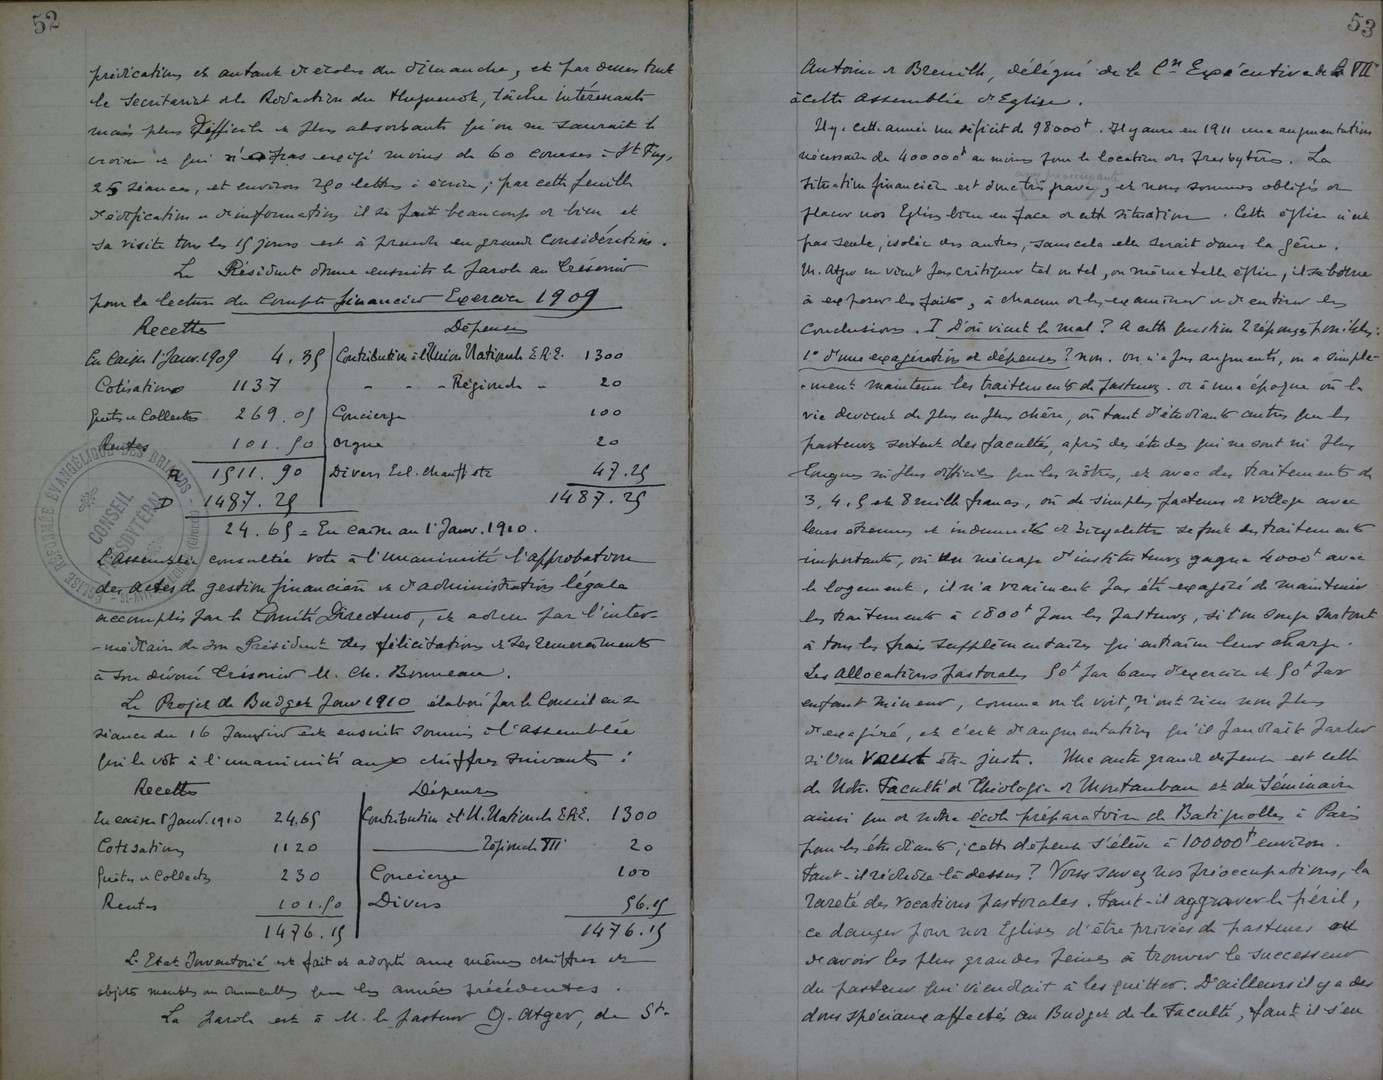 52
prédications et autant d'écoles du dimanche, et par dessus tout
le Secrétariat de la Rédaction du Huguenot, tâche intéressante
mais plus difficile et plus absorbante qu'on ne saurait le
croire et qui n'a pas exigé moins de 60 courses à St Fuy,
25 séances, et environ 250 lettres à écrire ; par cette feuille
d'édification et d'information il se fait beaucoup de bien et
sa visite tous les 15 jours est à prendre en grande considération.
Le Président donne ensuite la parole au Trésorier
pour la lecture du Compte financier Exercice 1909
Recettes Dépenses
En caisse 1er Janv. 1909 4.35 Contribution à l'Union Nationale E.R.E. 1300
Cotisations 1137 - - - Régionale - 20
Quêtes et Collectes 269.05 Concierge 100
Rentes 101.50 Orgue 20
R 1511.90 Divers Ecl. Chauff etc 47.25
D 1487.25 1487.25
24.65 = En caisse au 1er Janv. 1910.
L'Assemblée consultée vote à l'unanimité l'approbation
des actes de gestion financière et d'administration légale
accomplis par le Comité Directeur, et adresse par l'inter-
-médiaire de son Président des félicitations et des remerciements
à son dévoué Trésorier M. Ch. Bonneau.
Le Projet de Budget pour 1910 élaboré par le Conseil en sa
séance du 16 Janvier est ensuite soumis à l'Assemblée
qui le vote à l'unanimité aux chiffres suivants :
Recettes Dépenses
En caisse 1er Janv. 1910 24.65 Contribution à l'U. Nationale E.R.E. 1300
Cotisations 1120 Régionale VII 20
Quêtes et Collectes 230 Concierge 100
Rentes 101.50 Divers 56.15
1476.15 1476.15
L'Etat Inventorié est fait et adopté aux mêmes chiffres et
objets meubles ou immeubles que les années précédentes.
La parole est à M. le pasteur G. Atger, de St-
EGLISE RÉFORMÉE ÉVANGÉLIQUE DES
CONSEIL PRESBYTÉRAL
53
Antoine de Breuilh, délégué de la Con Exécutive de la VIIe
à cette Assemblée d'Eglise.
Il y a cette année un déficit de 98000f. Il y aura en 1911 une augmentation
nécessaire de 400000f au moins pour la location des presbytères. La
situation financière est donc très grave, et nous sommes obligés de
placer nos Eglises bien en face de cette situation. Cette église n'est
pas seule, isolée des autres, sans cela elle serait dans la gêne.
M. Atger ne vient pas critiquer tel ou tel, ou même telle église, il se borne
à exposer les faits, à chacun de les examiner et d'en tirer les
conclusions. I D'où vient le mal ? A cette question 2 réponses possibles :
1° d'une exagération de dépenses ? non. on n'a pas augmenté, on a simple-
-ment maintenu les traitements des pasteurs. or à une époque où la
vie devient de plus en plus chère, où tant d'étudiants autres que les
pasteurs sortent des facultés, après des études qui ne sont ni plus
longues ni plus difficiles que les nôtres, et avec des traitements de
3, 4, 5 et 8 mille francs, où de simples facteurs de village avec
leurs étrennes et indemnités de bicyclette se font des traitements
importants, où un ménage d'instituteurs gagne 4000f avec
le logement, il n'a vraiment pas été exagéré de maintenir
les traitements à 1800f pour les pasteurs, si l'on songe surtout
à tous les frais supplémentaires qu'entraîne leur charge.
Les Allocations pastorales 50f par 6 ans d'exercice et 50f par
enfant mineur, comme on le voit, n'ont rien non plus
d'exagéré, et c'est d'augmentation qu'il faudrait parler
si l'on veut être juste. Une autre grande dépense est celle
de Notre Faculté de Théologie de Montauban et du Séminaire
ainsi que de notre école préparatoire de Batignolles à Paris
pour les étudiants, cette dépense s'élève à 100000f environ.
Faut-il réduire là dessus ? Vous savez nos préoccupations, la
rareté des vocations pastorales. Faut-il aggraver le péril,
ce danger pour nos Eglises d'être privées de pasteurs et
d'avoir les plus grandes peines à trouver le successeur
du pasteur qui viendrait à les quitter. D'ailleurs il y a des
dons spéciaux affectés au Budget de la Faculté, faut il s'en